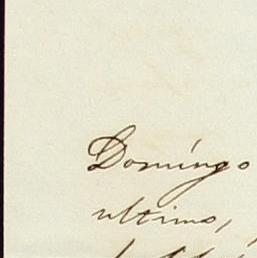 Domíngo
ultimo,